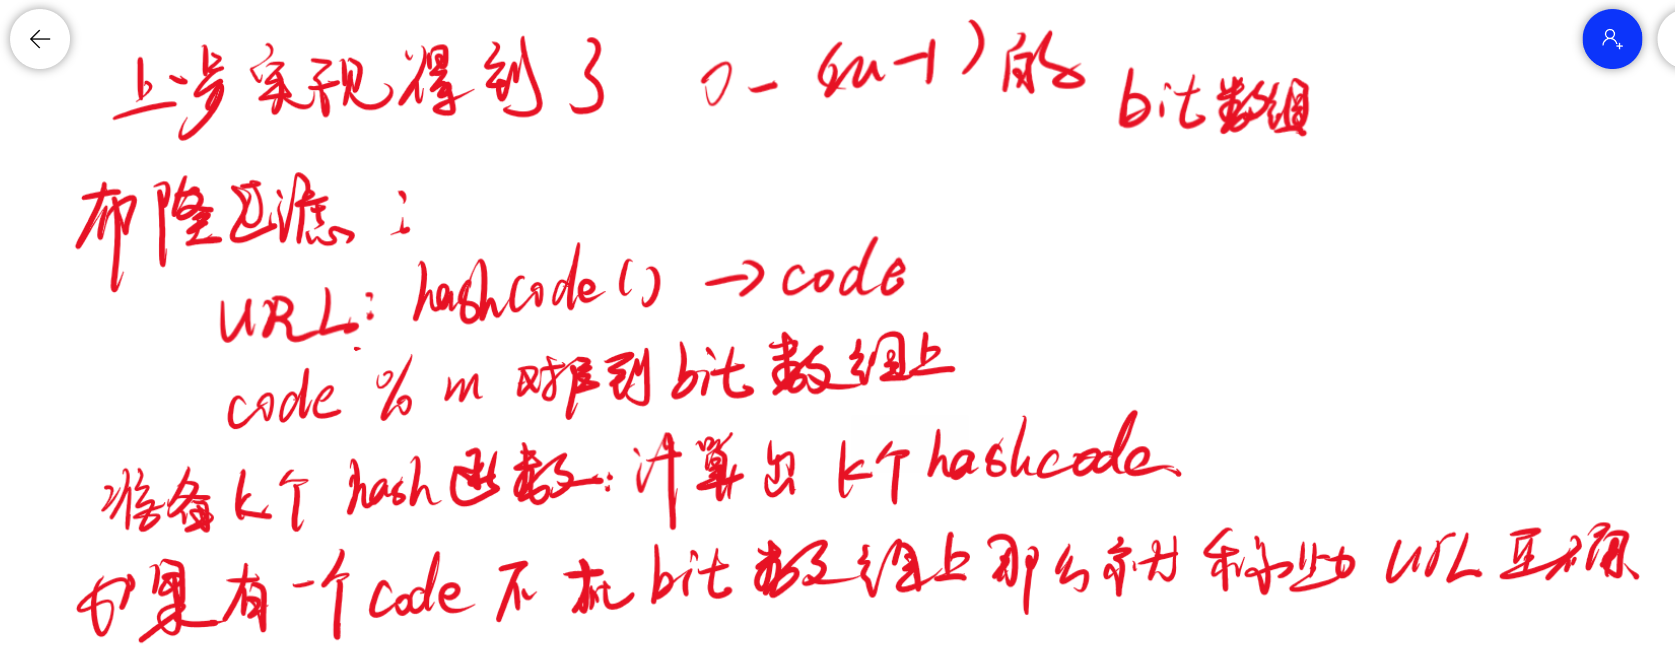 上步实现得到了 0-(m-1)的 bit数组
布隆过滤:
URL: hashcode() →code
code % m 对应到 bit 数组上
准备 k个 hash函数: 计算出 k个hashcode
如果有一个code 不在 bit 数组上 那么就 称此 URL